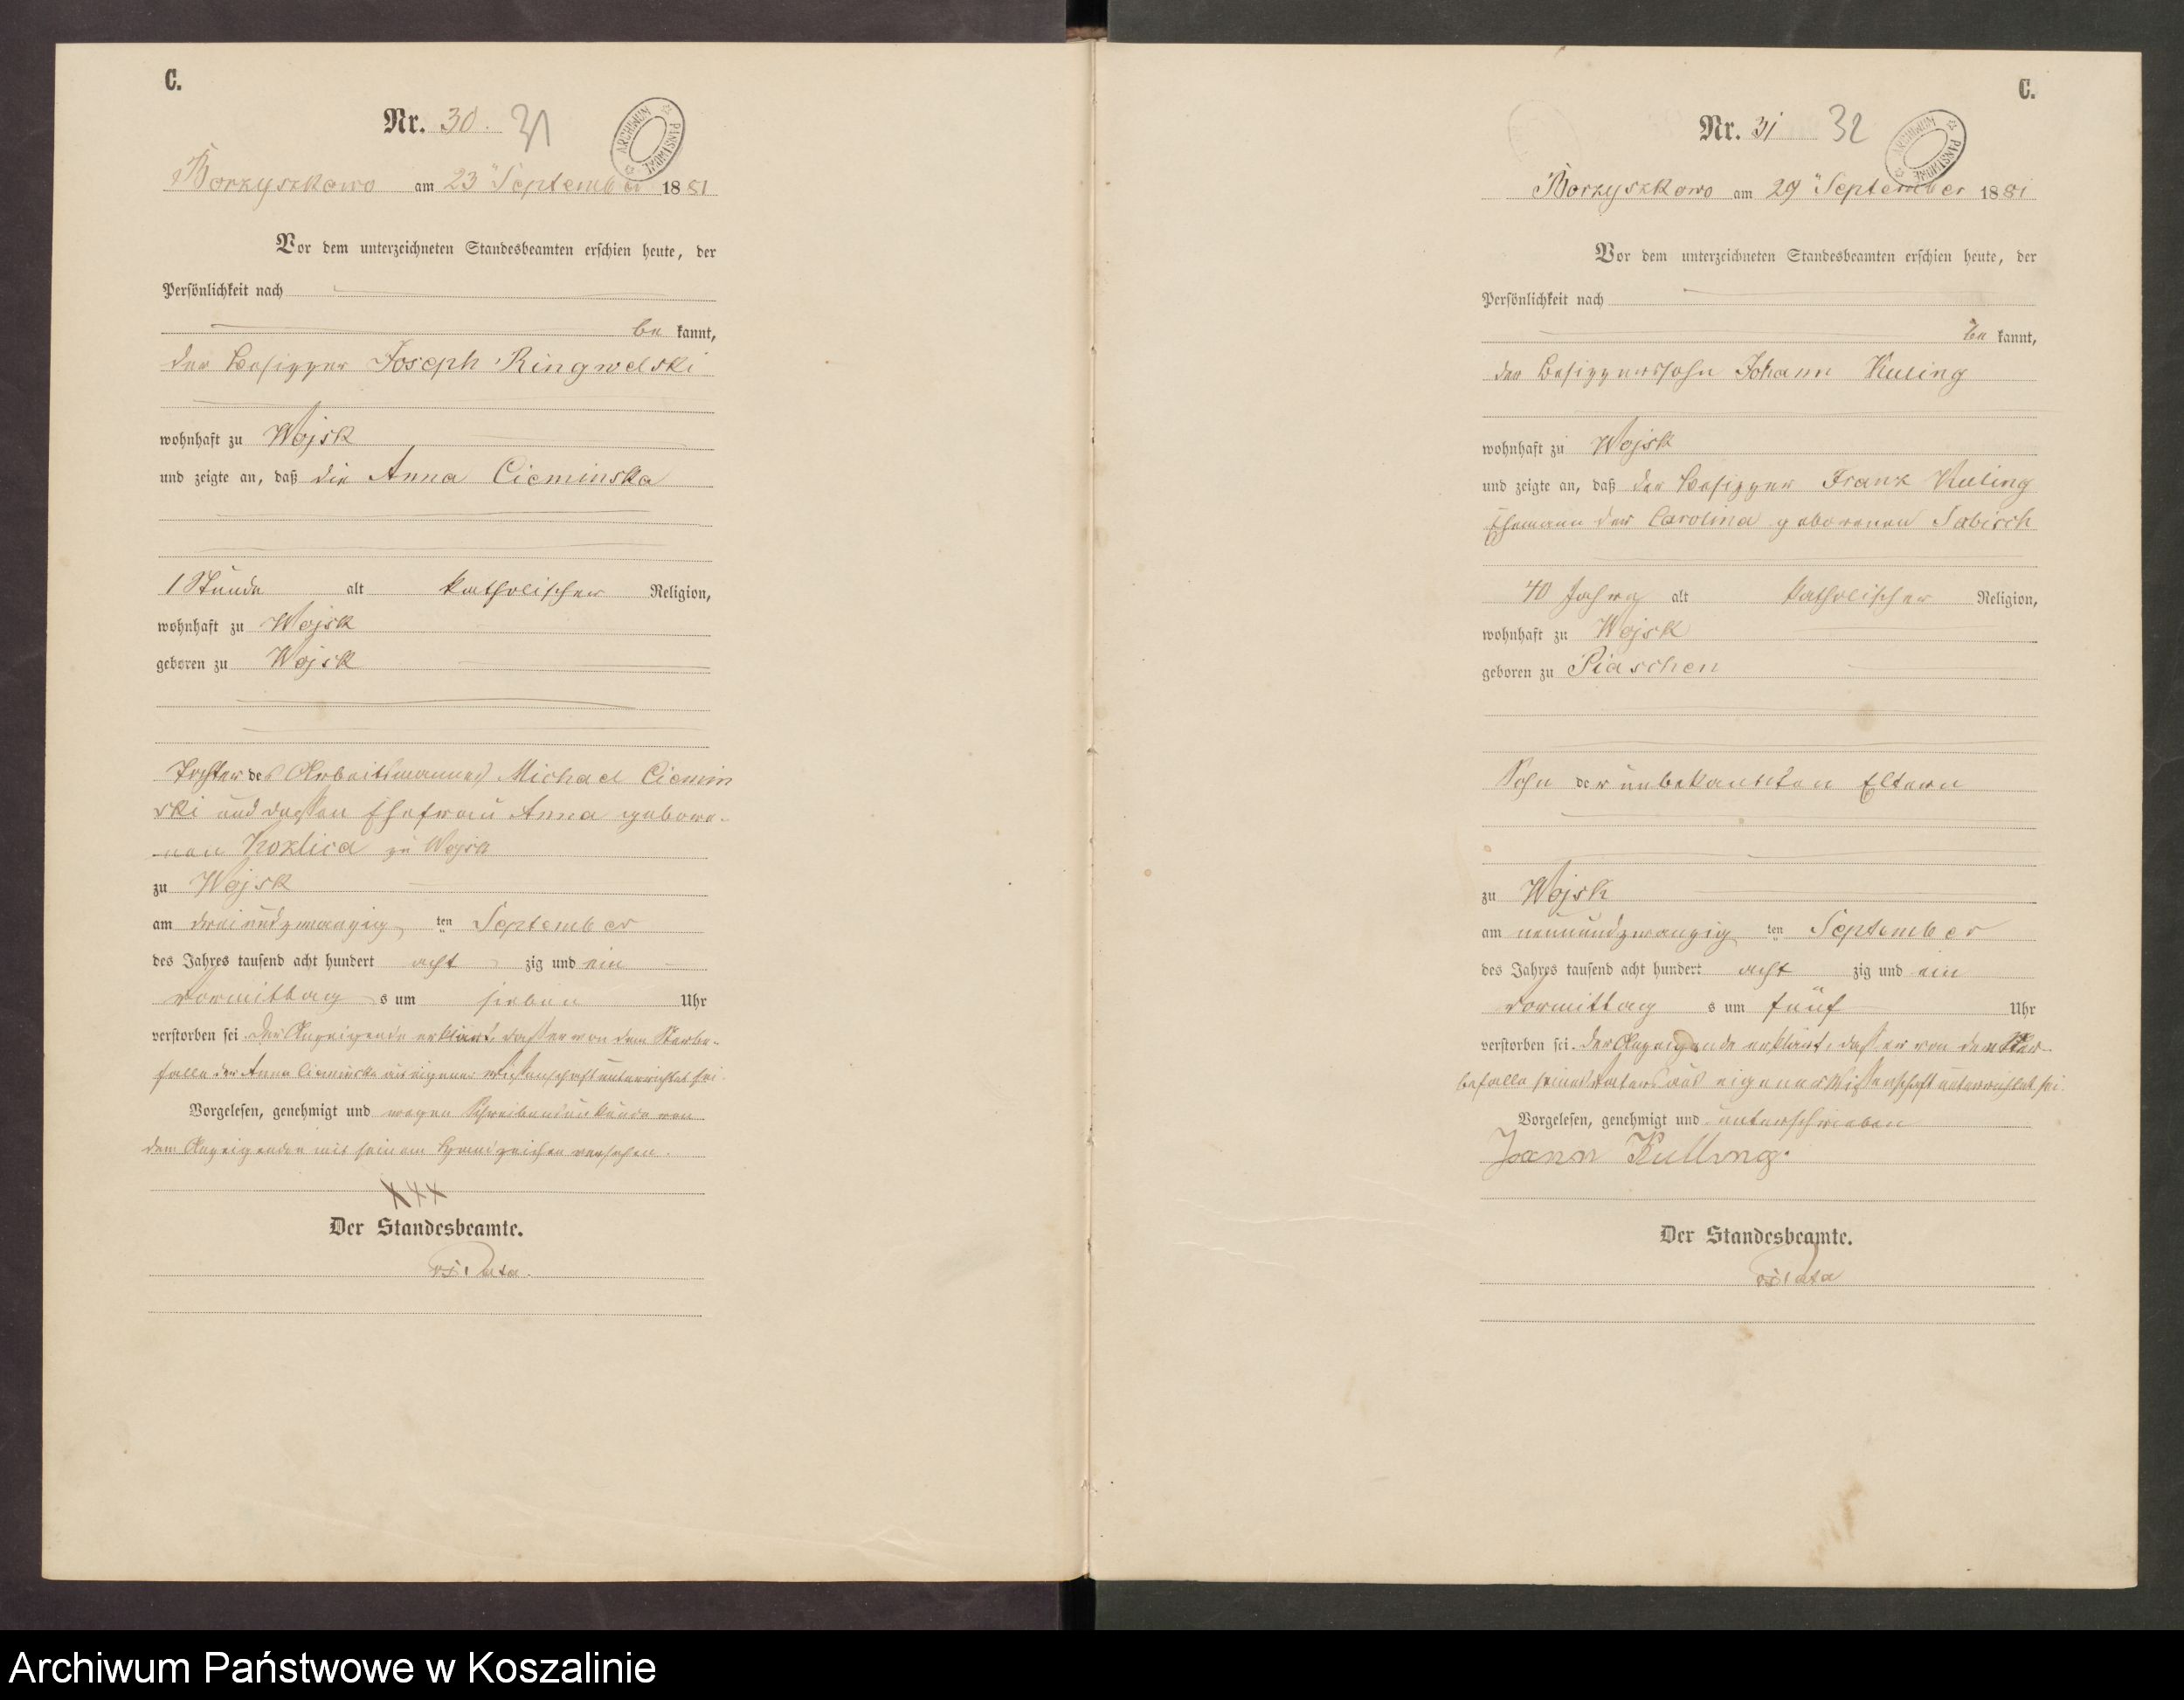 C.
Nr. 30. 31
ARCHIWUM PAŃSTWOWE
Borzyszkowo am 23 ten September 1881
Vor dem unterzeichneten Standesbeamten erschien heute, der
Persönlichkeit nach
be kannt,
der Besitzer Joseph Ringwelski
wohnhaft zu Wojsk
und zeigte an, daß die Anna Cieminska
1 Stunde alt katholischer Religion,
wohnhaft zu Wojsk
geboren zu Wojsk
Tochter des Arbeitsmannes Michael Ciemin
ski und dessen Ehefrau Anna gebore-
nen zu Wojsk
zu Wojsk
am dreiundzwanzig ten September
des Jahres tausend acht hundert acht zig und ein
vormittag s um sieben Uhr
verstorben sei. Der Anzeigende erklärt, daß er von dem Sterbe-
falle der Anna Cieminska aus eigener Wissenschaft unterrichtet sei.
Vorgelesen, genehmigt und wegen Schreibensunkunde von
dem Anzeigenden mit seinem Handzeichen versehen.
XXX
Der Standesbeamte.
C.
Nr. 31 32
ARCHIWUM PAŃSTWOWE
Borzyszkowo am 29 ten September 1881
Vor dem unterzeichneten Standesbeamten erschien heute, der
Persönlichkeit nach
be kannt,
der Besitzerssohn Johann Kuling
wohnhaft zu Wojsk
und zeigte an, daß der Besitzer Franz Kuling
Ehemann der Carolina geborenen Sabisch
40 Jahre alt katholischer Religion,
wohnhaft zu Wojsk
geboren zu Piaschen
Sohn der unbekannten Eltern
zu Wojsk
am neunundzwanzig ten September
des Jahres tausend acht hundert acht zig und ein
vormittag s um fünf Uhr
verstorben sei. Der Anzeigende erklärt, daß er von dem Ster-
befalle seines Vaters aus eigener Wissenschaft unterrichtet sei.
Vorgelesen, genehmigt und unterschrieben
Joann Kulling.
Der Standesbeamte.
Archiwum Państwowe w Koszalinie